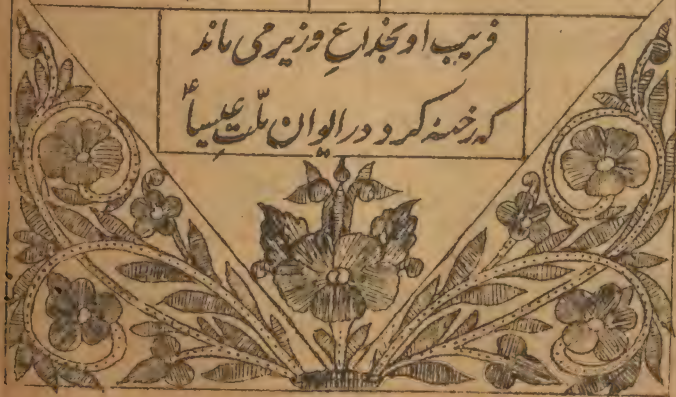 فریب او بخداعِ وزیر می ماند
که رخنه کرد در ایوان ملّتِ عیساؑ